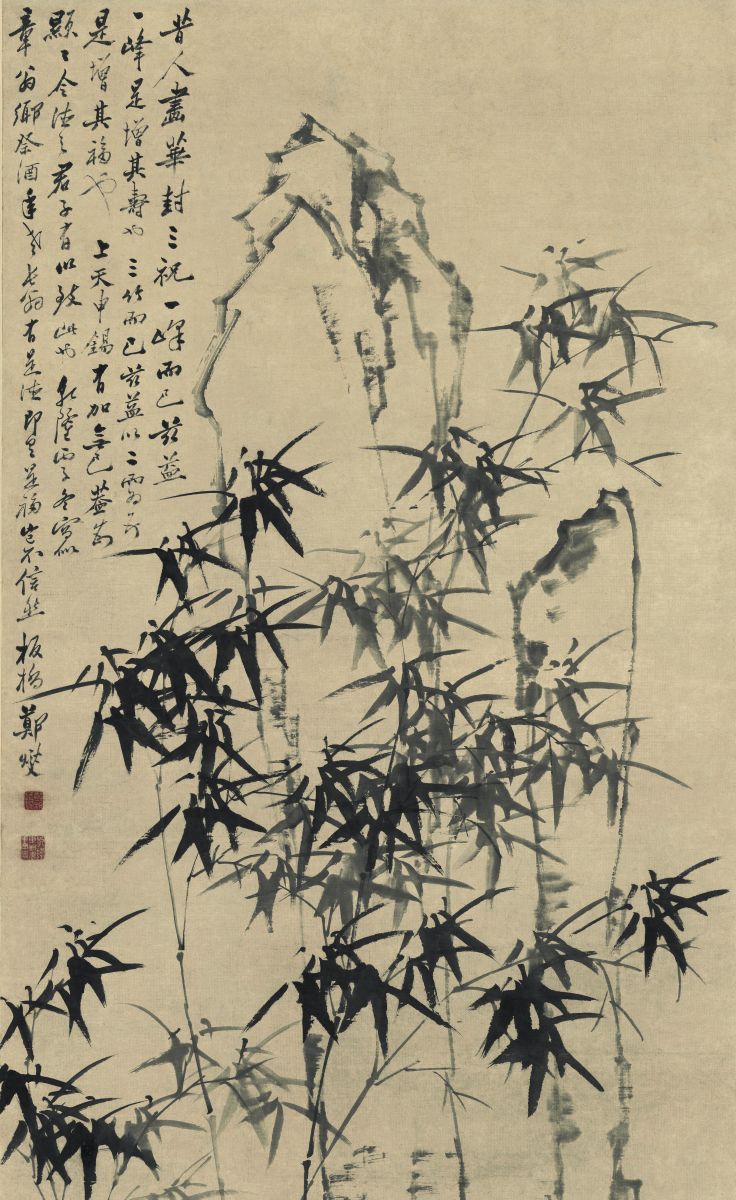 昔人畫華封三祝一峰而已茲益
一峰是增其壽也三竹而已茲益以二兩
是增其福也上天申錫有加無已蓋
顯〻令德之君子有以致此也乾隆丙子冬寫似
章翁鄉祭酒年老長翁有是德即有是福豈不信然板橋鄭燮